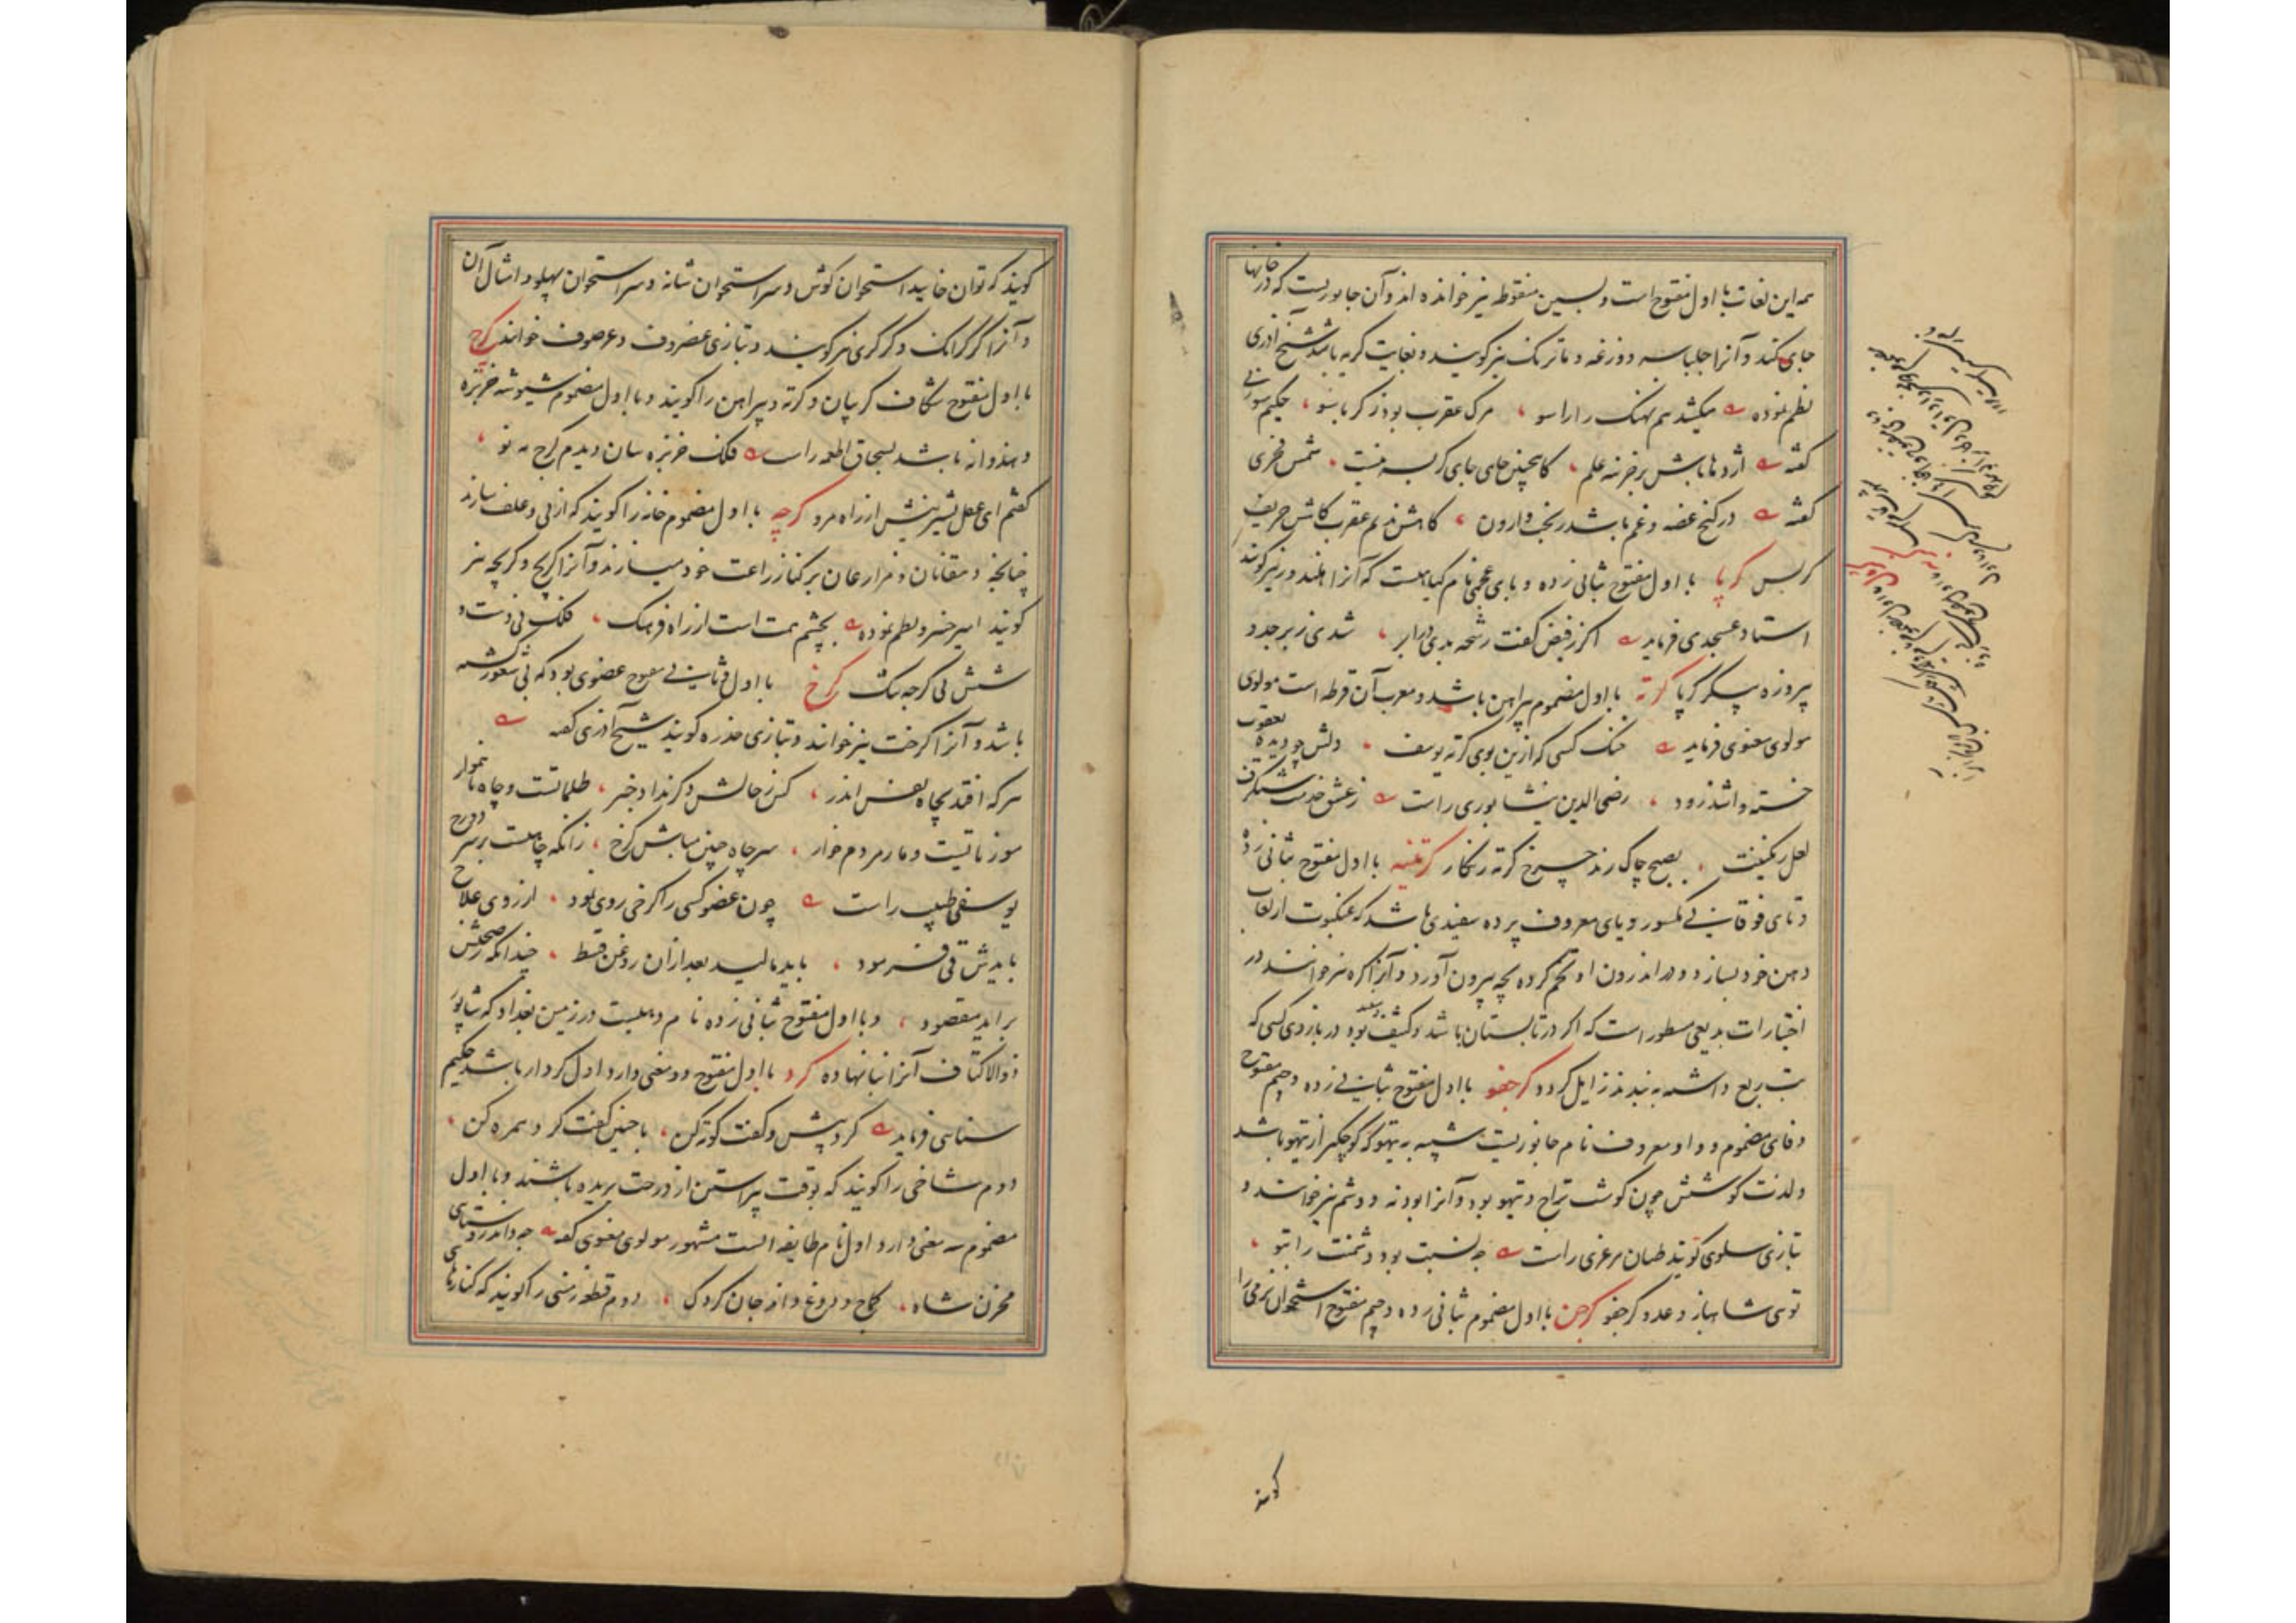 همه این لغات با اول مفتوح است و بسین منقوطه نیز خوانده اند و آن جانوریست که در خانها
جای کند و آنرا چلپاسه و وزغه و ماترنک نیز کویند و بغایت کریه باشد شیخ آذری
نظم نموده میکشد هم نهنک را راسو مرک عقرب بود ز کرباسو حکیم سوزنی
کفته اژدها باش بر خزنه علم کاهچنین جای جای کربسه نیست شمس فخری
کفته در کنج غصه و غم باشد ز بخت وارون کاهش ندیم عقرب کاهش حریف
کربس کرپا با اول مفتوح بثانی زده و بای عجمی نام کیاهیست که آنرا هلندور نیز کویند
استاد عسجدی فرماید اکر ز فیض کفت رشحه بدی در ابر شدی زبرجد و
پیروزه پیکر کرپا کرته با اول مضموم پیراهن باشد و معرب آن قرطه است مولوی
مولوی معنوی فرماید خنک کسی که ازین بوی کرته یوسف دلش چو دیده یعقوب
خسته واشد زود رضی الدین نیشابوری راست ز عشق خدمت شنکرف
لعل رنکینت بصبح چاک زند چرخ کرته زنکار کرتینه با اول مفتوح بثانی زده
و تای فوقانی مکسور و یای معروف پرده سفیدی باشد که عنکبوت از لعاب
دهن خود بسازد و در اندرون او تخم کرده بچه بیرون آورد و آنرا کره نیز خوانند در
اختیارات بدیعی مسطور است که اکر در تابستان باشد و کثیف و سفید بود در بازوی کسی که
تب ربع داشته به بندند زایل کردد کرجفو با اول مفتوح بثانی زده و جیم مفتوح
و فای مضموم و واو معروف نام جانوریست شبیه به تیهو که کوچکتر از تیهو باشد
و لذت کوشتش چون کوشت دراج و تیهو بود و آنرا بودنه و وشم نیز خوانند و
بتازی سلوی کویند طیان مرغزی راست چه نسبت بود دشمنت را بتو
توی شاهباز و عدو کرجفو کرجن با اول مضموم بثانی زده و جیم مفتوح استخوان نرمی را
کویند
کویند که توان خایید استخوان کوش و سر استخوان شانه و سر استخوان پهلو و امثال آن
و آنرا کرکرانک و کرکری نیز کویند و بتازی غضروف و غرضوف خوانند کرج
با اول مفتوح شکاف کریبان و کرته و پیراهن را کویند و با اول مضموم شیوشه خربزه
و هندوانه باشد بسحاق اطعمه راست فلک خربزه سان دیدم کرج مه نو
کفتم ای عقل بشیرینیش از راه مرو کرچه با اول مضموم خانه را کویند که از نی و علف سازند
چنانچه دهقانان و مزارعان بر کنار زراعت خود میسازند و آنرا کریچ و کریچه نیز
کویند امیر خسرو نظم نموده بچشم همت است از راه فرهنک فلک نی دست و
شش نی کرچه تنک کرخ با اول و ثانی مفتوح عضوی بود که بی شعور کشته
باشد و آنرا کرخت نیز خوانند و بتازی خدره کویند شیخ آذری کفته
هرکه افتد بچاه نفس اندر کس ز حالش دکر نداد خبر ظلماتست و چاه ناهموار
موذیاتیست و مار مردم خوار سر چاه چنین مباش کرخ زانکه چاهیست بر سر دوزخ
یوسفی طبیب راست چون عضو کسی را کرخی روی نمود از روی علاج
بایدش قی فرمود باید مالید بعد از آن روغن قسط چندانکه ز صحتش
برآید مقصود و با اول مفتوح بثانی زده نام دهیست در زمین بغداد که شاپور
ذوالاکتاف آنرا بنا نهاده کرد با اول مفتوح دو معنی دارد اول کردار باشد حکیم
سنایی فرماید کرد پیش و کفت کوته کن با چنین کفت کرد همره کن
دوم شاخی را کویند که بوقت پیراستن از درخت بریده باشند و با اول
مضموم سه معنی دارد اول نام طایفه ایست مشهور مولوی معنوی کفته چه داند روستایی
مخزن شاه کماج و دوغ داند جان کردک دوم قطعه زمینی را کویند که کنارهای